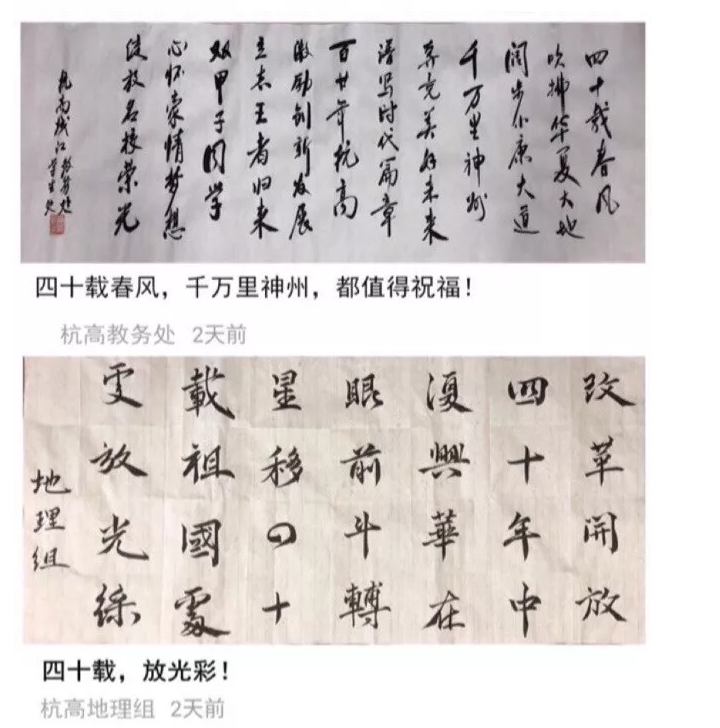 四十载春风
吹拂华夏大地
阔步小康大道
千万里神州
奔竞美好未来
谱写时代篇章
百廿年杭高
激励创新发展
立志王者归来
双甲子同学
心怀豪情梦想
绽放名校荣光
杭高钱江
教务处
学生处
四十载春风，千万里神州，都值得祝福！
杭高教务处 2天前
改革開放
四十年中
復興華在
眼前斗轉
星移四十
載祖國處
處放光綵
地理组
四十载，放光彩！
杭高地理组 2天前